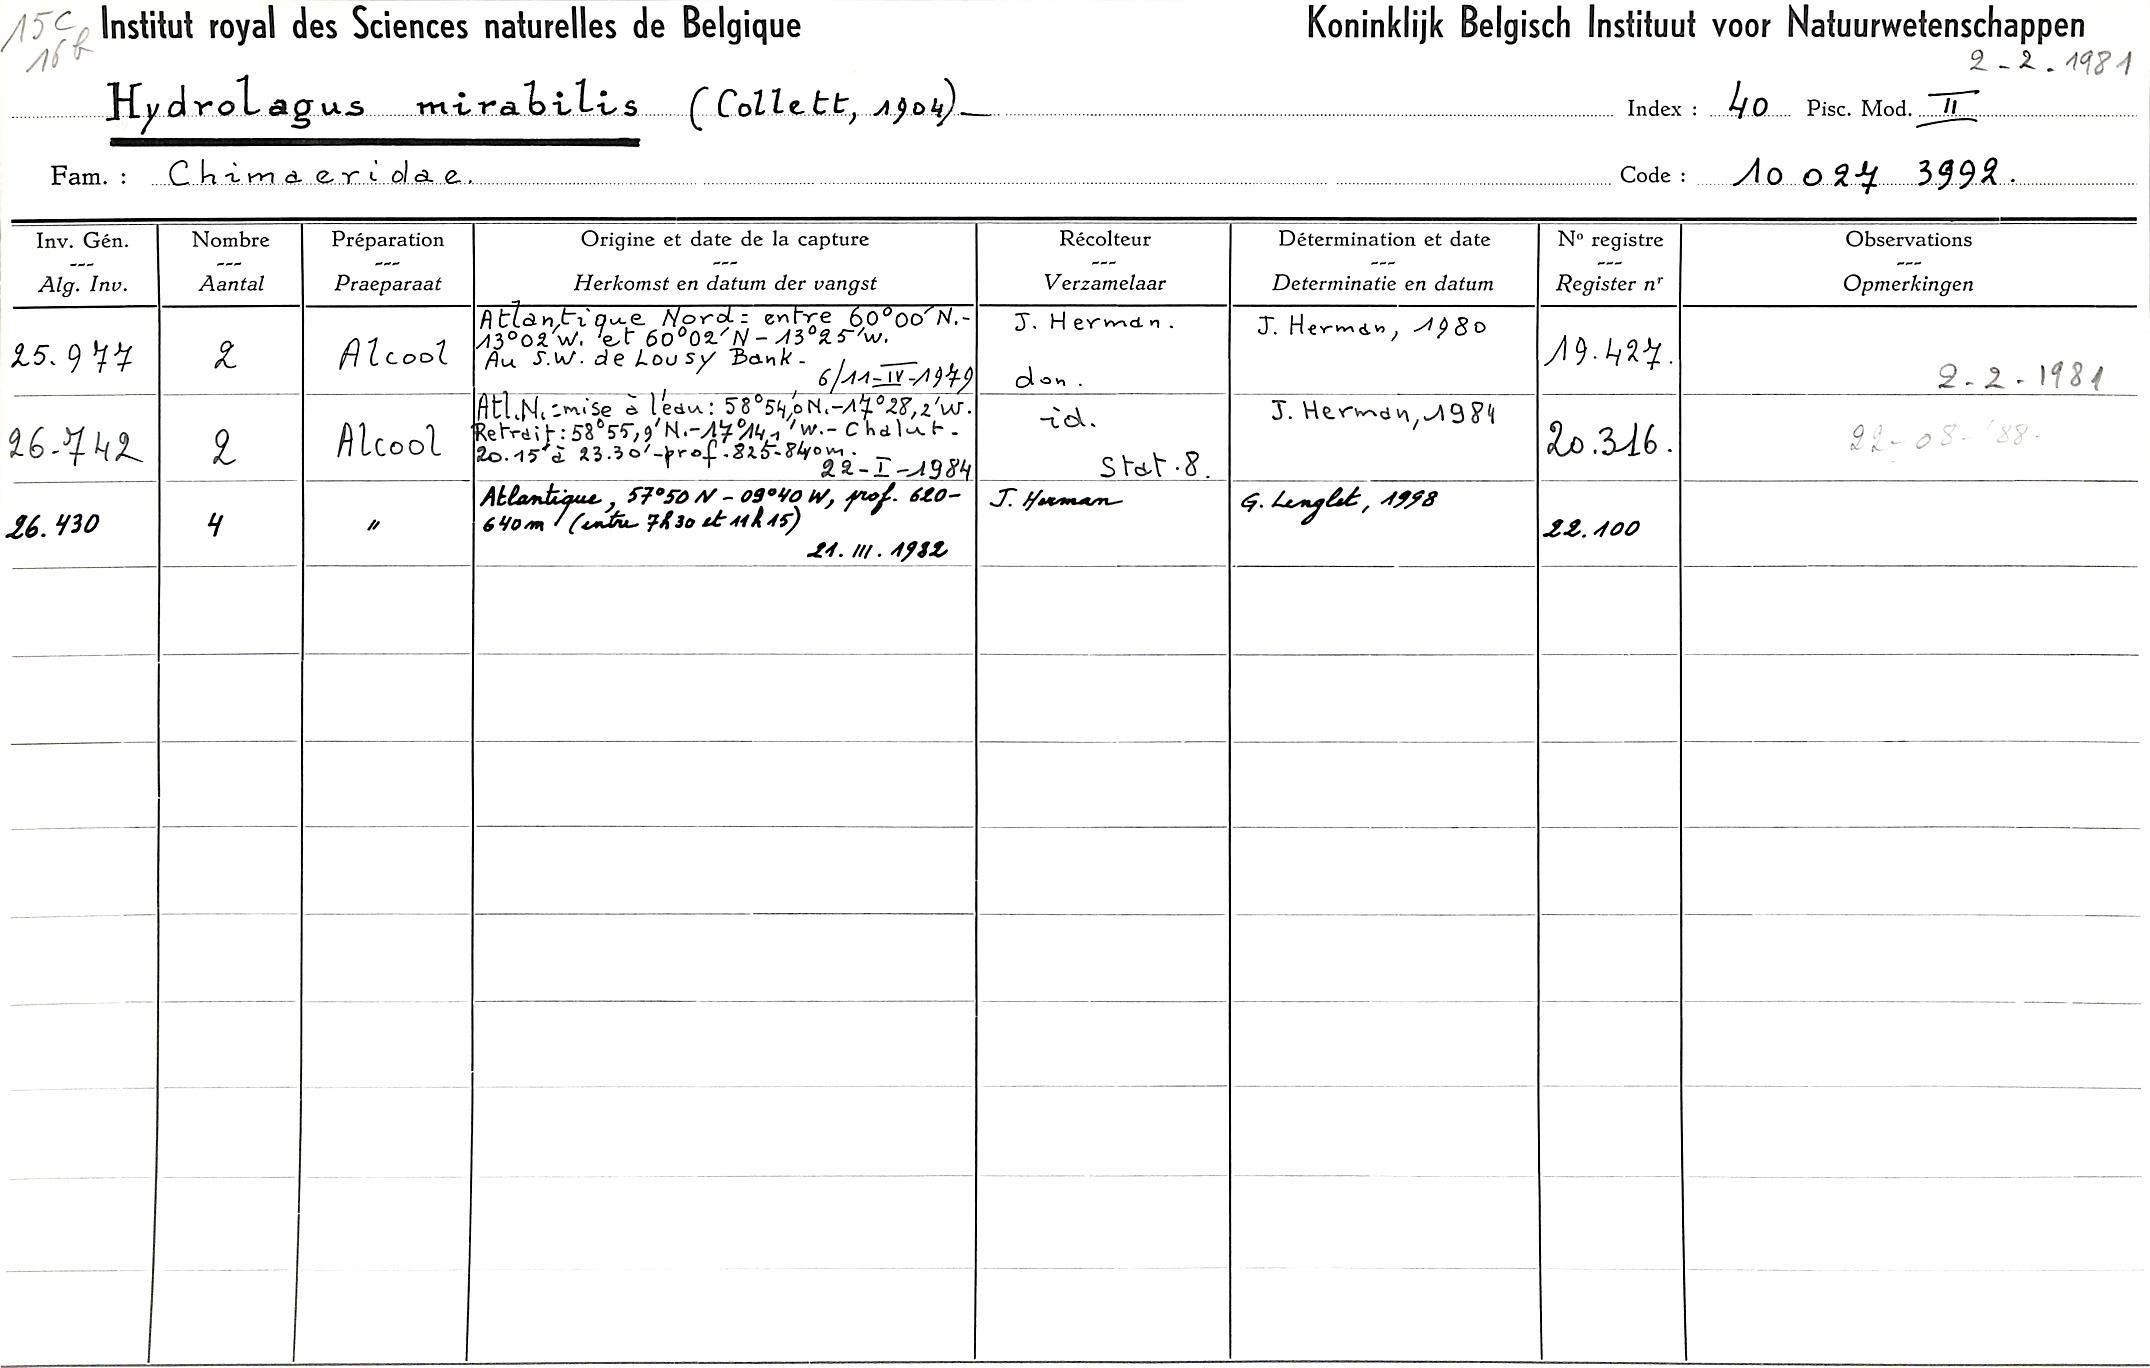 15C
16b
Institut royal des Sciences naturelles de Belgique
Koninklijk Belgisch Instituut voor Natuurwetenschappen
2-2-1981
Hydrolagus mirabilis (Collett, 1904)_
Index : 40 Pisc. Mod. II
Fam. : Chimaeridae.
Code : 10 027 3992.
Inv. Gén.
---
Alg. Inv.
Nombre
---
Aantal
Préparation
---
Praeparaat
Origine et date de la capture
---
Herkomst en datum der vangst
Récolteur
---
Verzamelaar
Détermination et date
---
Determinatie en datum
Nº registre
---
Register nʳ
Observations
---
Opmerkingen
25.977
2
Alcool
Atlantique Nord: entre 60°00'N.-
13°02'W. et 60°02'N-13°25'W.
Au S.W. de Lousy Bank-
6/11-IV-1979
J. Herman.
don.
J. Herman, 1980
19.427.
2-2-1981
26.742
2
Alcool
Atl.N.:mise à l'eau: 58°54,0N.-17°28,2'W.
Retrait: 58°55,9'N.-17°14,1'W.-Chalut-
20.15'à 23.30'-prof.825-840m.
22-I-1984
id.
Stat.8.
J. Herman, 1984
20.316.
22-08-'88.
26.430
4
"
Atlantique, 57°50 N - 09°40 W, prof. 620-
640m (entre 7h30 et 11h15)
21.III.1982
J. Herman
G. Lenglet, 1998
22.100